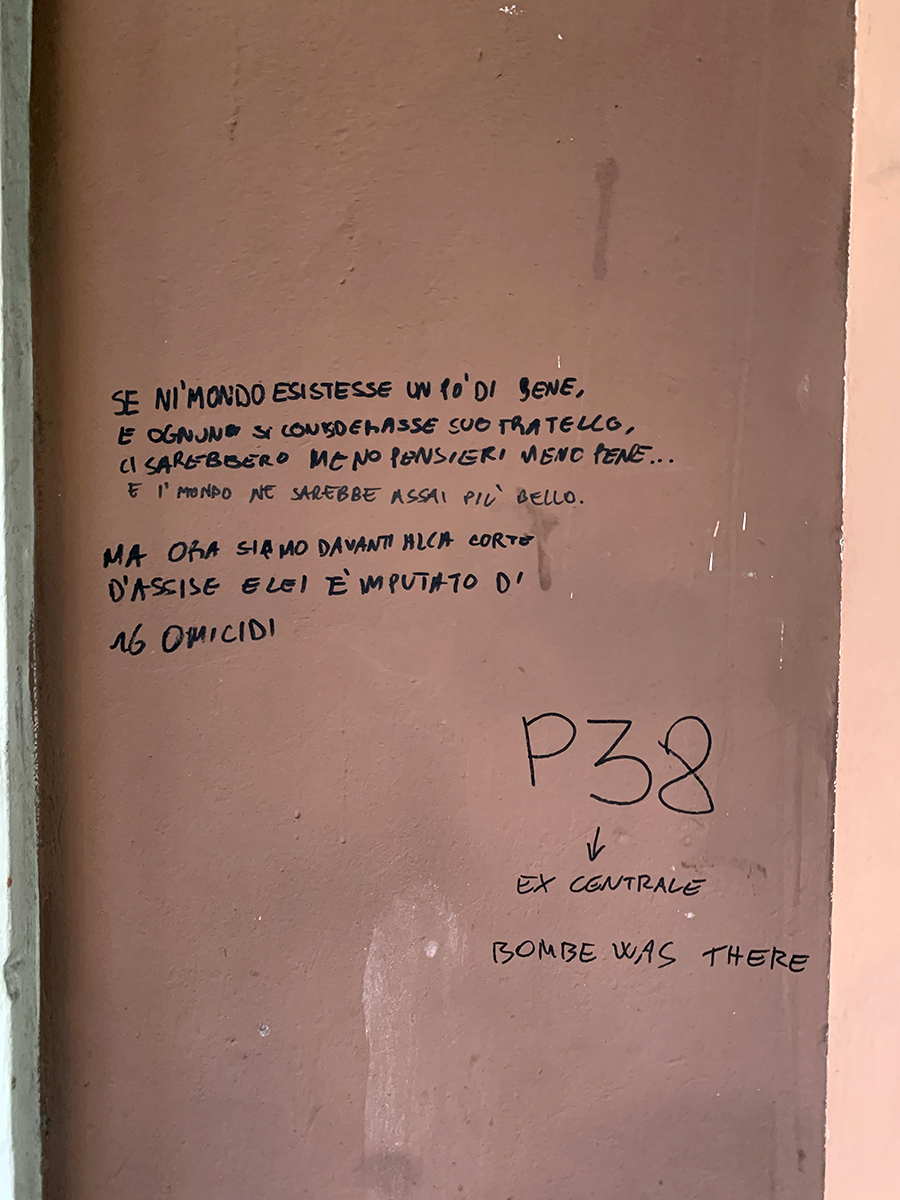 SE NI'MONDO ESISTESSE UN PO' DI BENE,
E OGNUNO SI CONSIDERASSE SUO FRATELLO,
CI SAREBBERO MENO PENSIERI MENO PENE...
E I' MONDO NE SAREBBE ASSAI PIÙ BELLO.
MA ORA SIAMO DAVANTI ALLA CORTE
D'ASSISE E LEI È IMPUTATO DI
16 OMICIDI
P38
↓
EX CENTRALE
BOMBE WAS THERE